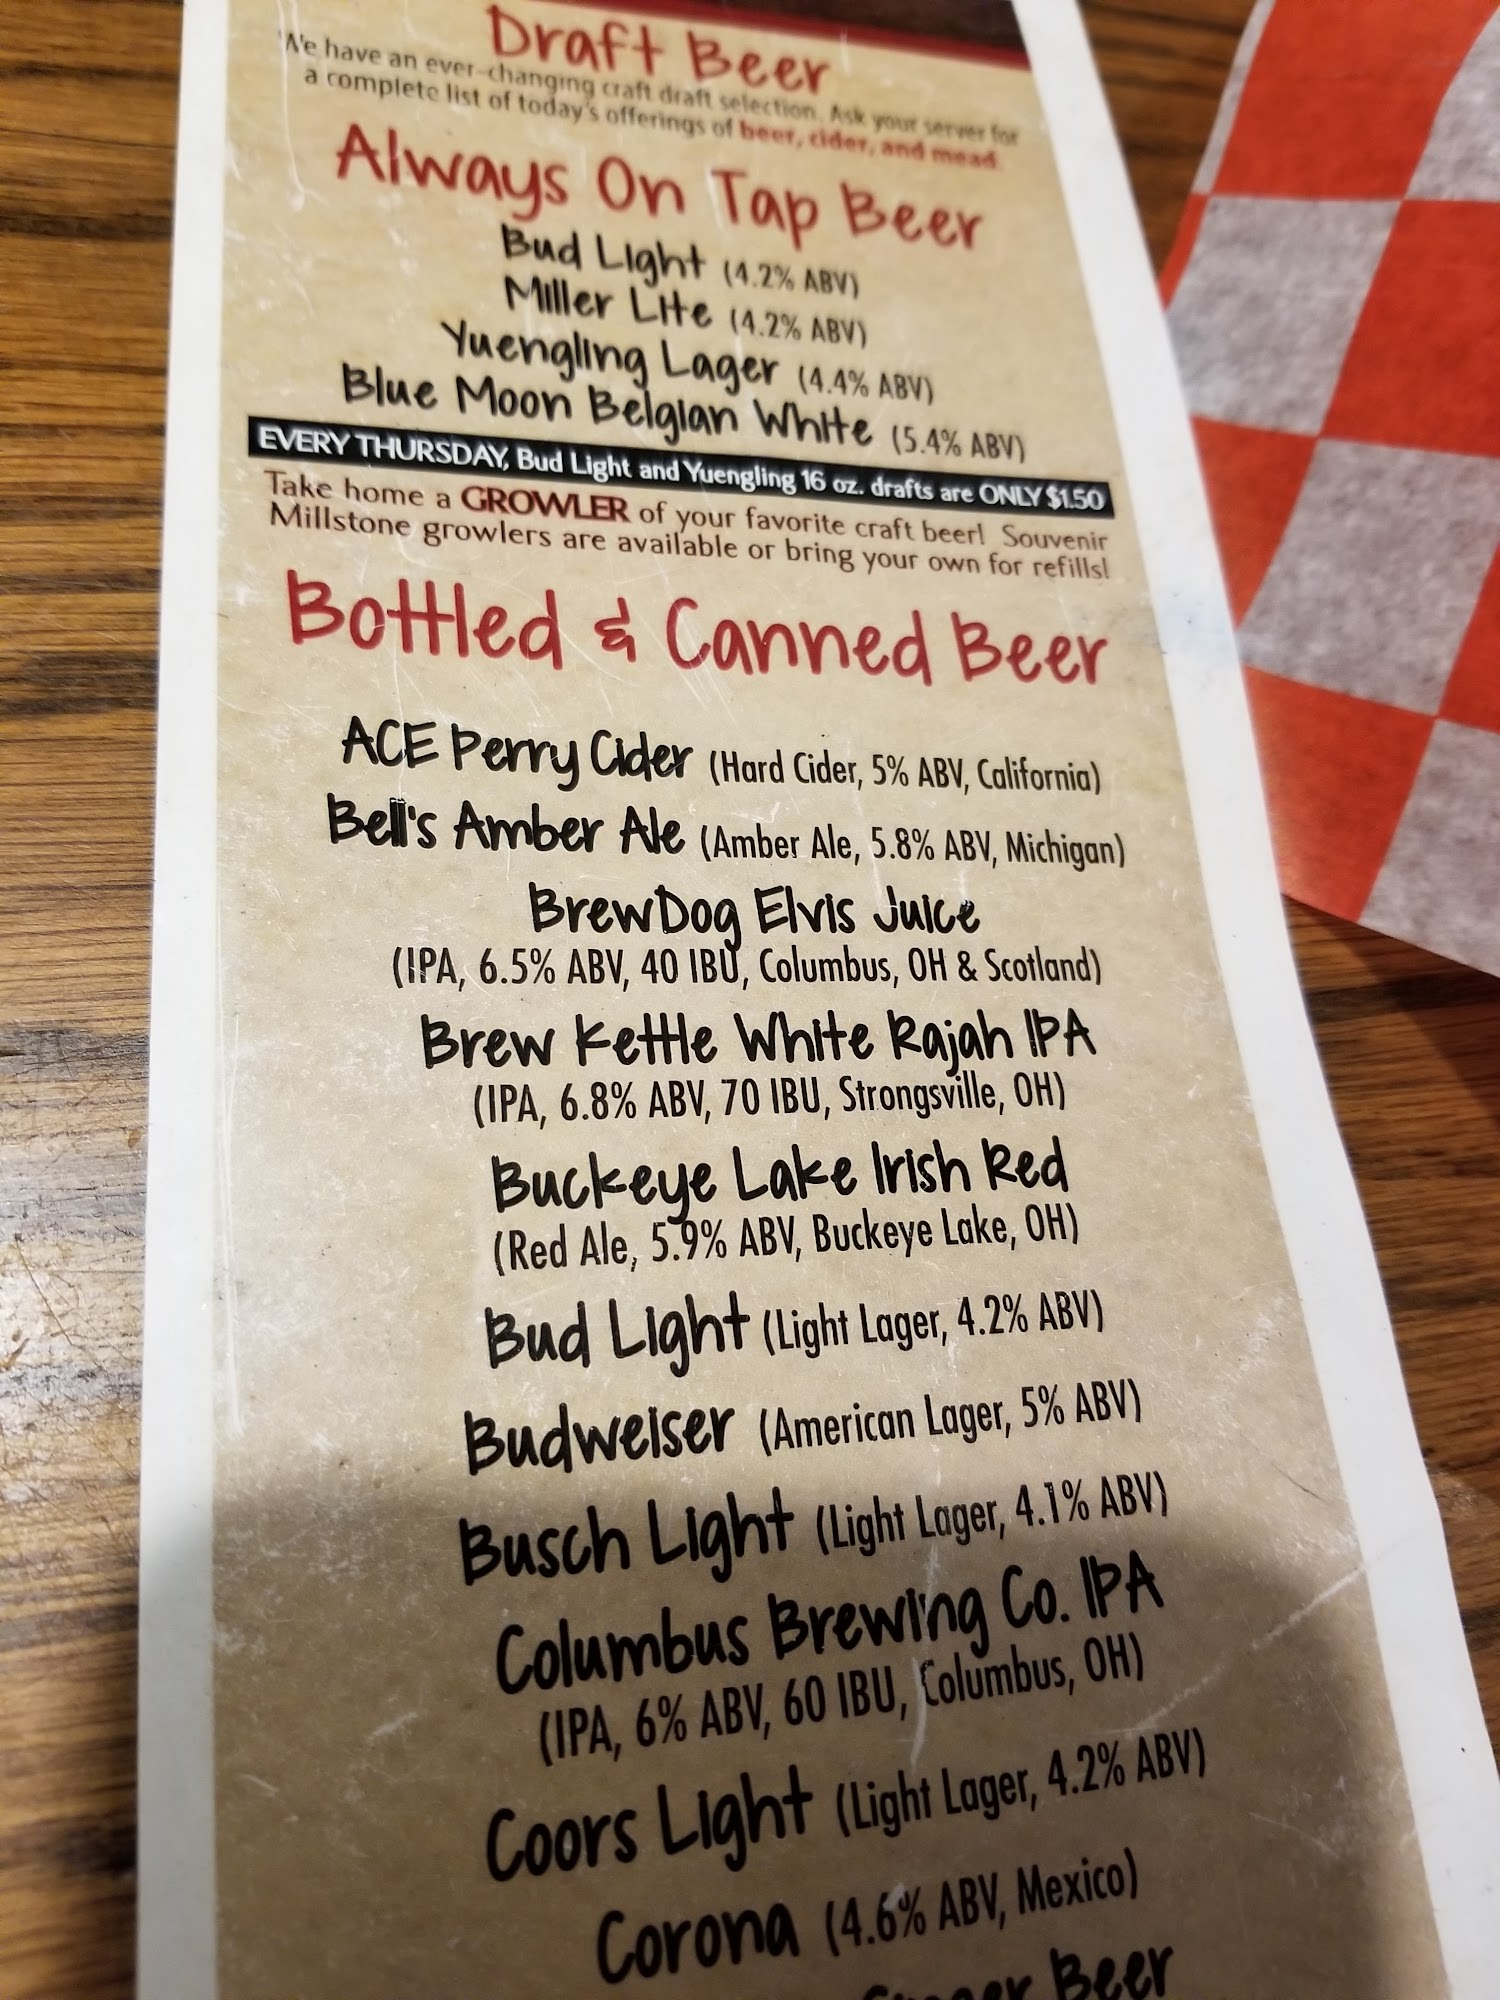 Draft Beer
We have an ever-changing craft draft selection. Ask your server for
a complete list of today's offerings of beer, cider, and mead.
Always On Tap Beer
Bud Light (4.2% ABV)
Miller Lite (4.2% ABV)
Yuengling Lager (4.4% ABV)
Blue Moon Belgian White (5.4% ABV)
EVERY THURSDAY, Bud Light and Yuengling 16 oz. drafts are ONLY $1.50
Take home a GROWLER of your favorite craft beer! Souvenir
Millstone growlers are available or bring your own for refills!
Bottled & Canned Beer
ACE Perry Cider (Hard Cider, 5% ABV, California)
Bell's Amber Ale (Amber Ale, 5.8% ABV, Michigan)
BrewDog Elvis Juice
(IPA, 6.5% ABV, 40 IBU, Columbus, OH & Scotland)
Brew Kettle White Rajah IPA
(IPA, 6.8% ABV, 70 IBU, Strongsville, OH)
Buckeye Lake Irish Red
(Red Ale, 5.9% ABV, Buckeye Lake, OH)
Bud Light (Light Lager, 4.2% ABV)
Budweiser (American Lager, 5% ABV)
Busch Light (Light Lager, 4.1% ABV)
Columbus Brewing Co. IPA
(IPA, 6% ABV, 60 IBU, Columbus, OH)
Coors Light (Light Lager, 4.2% ABV)
Corona (4.6% ABV, Mexico)
Beer